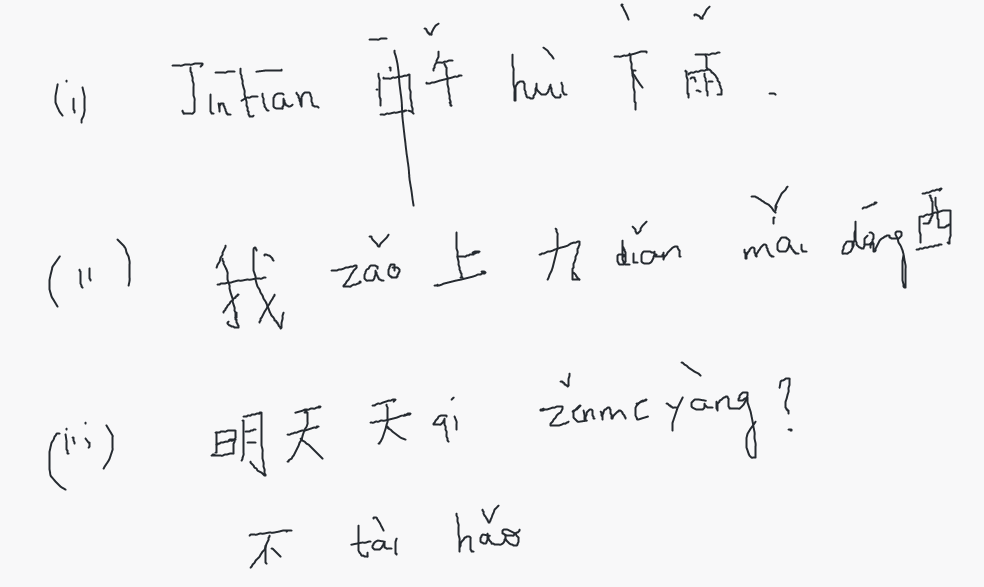 (i) Jīntiān 中午 hùi 下雨.
(ii) 我 zǎo 上 九 diǎn mǎi dōng 西
(iii) 明天 天 qi zěnme yàng?
不 tài hǎo